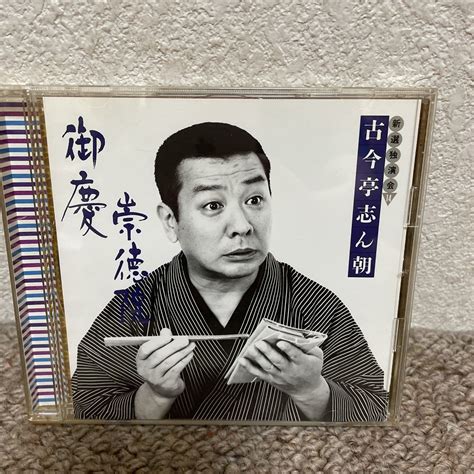 新選独演会
古今亭志ん朝
御慶
崇徳院